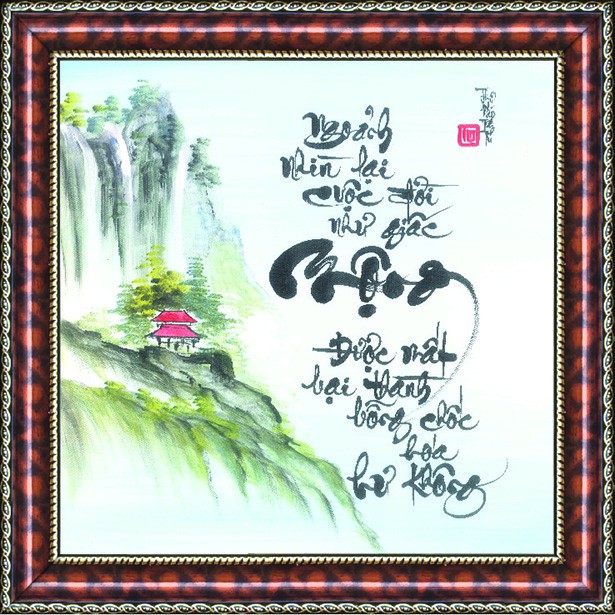 Ngoảnh
nhìn lại
cuộc đời
như giấc
Mộng
Được mất
bại thành
bỗng chốc
hóa
hư không